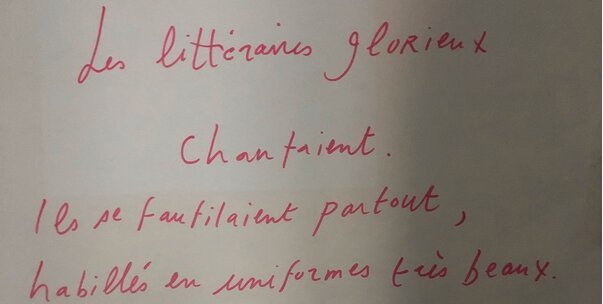 Les littéraires glorieux
Chantaient.
Ils se faufilaient partout,
habillés en uniformes très beaux.